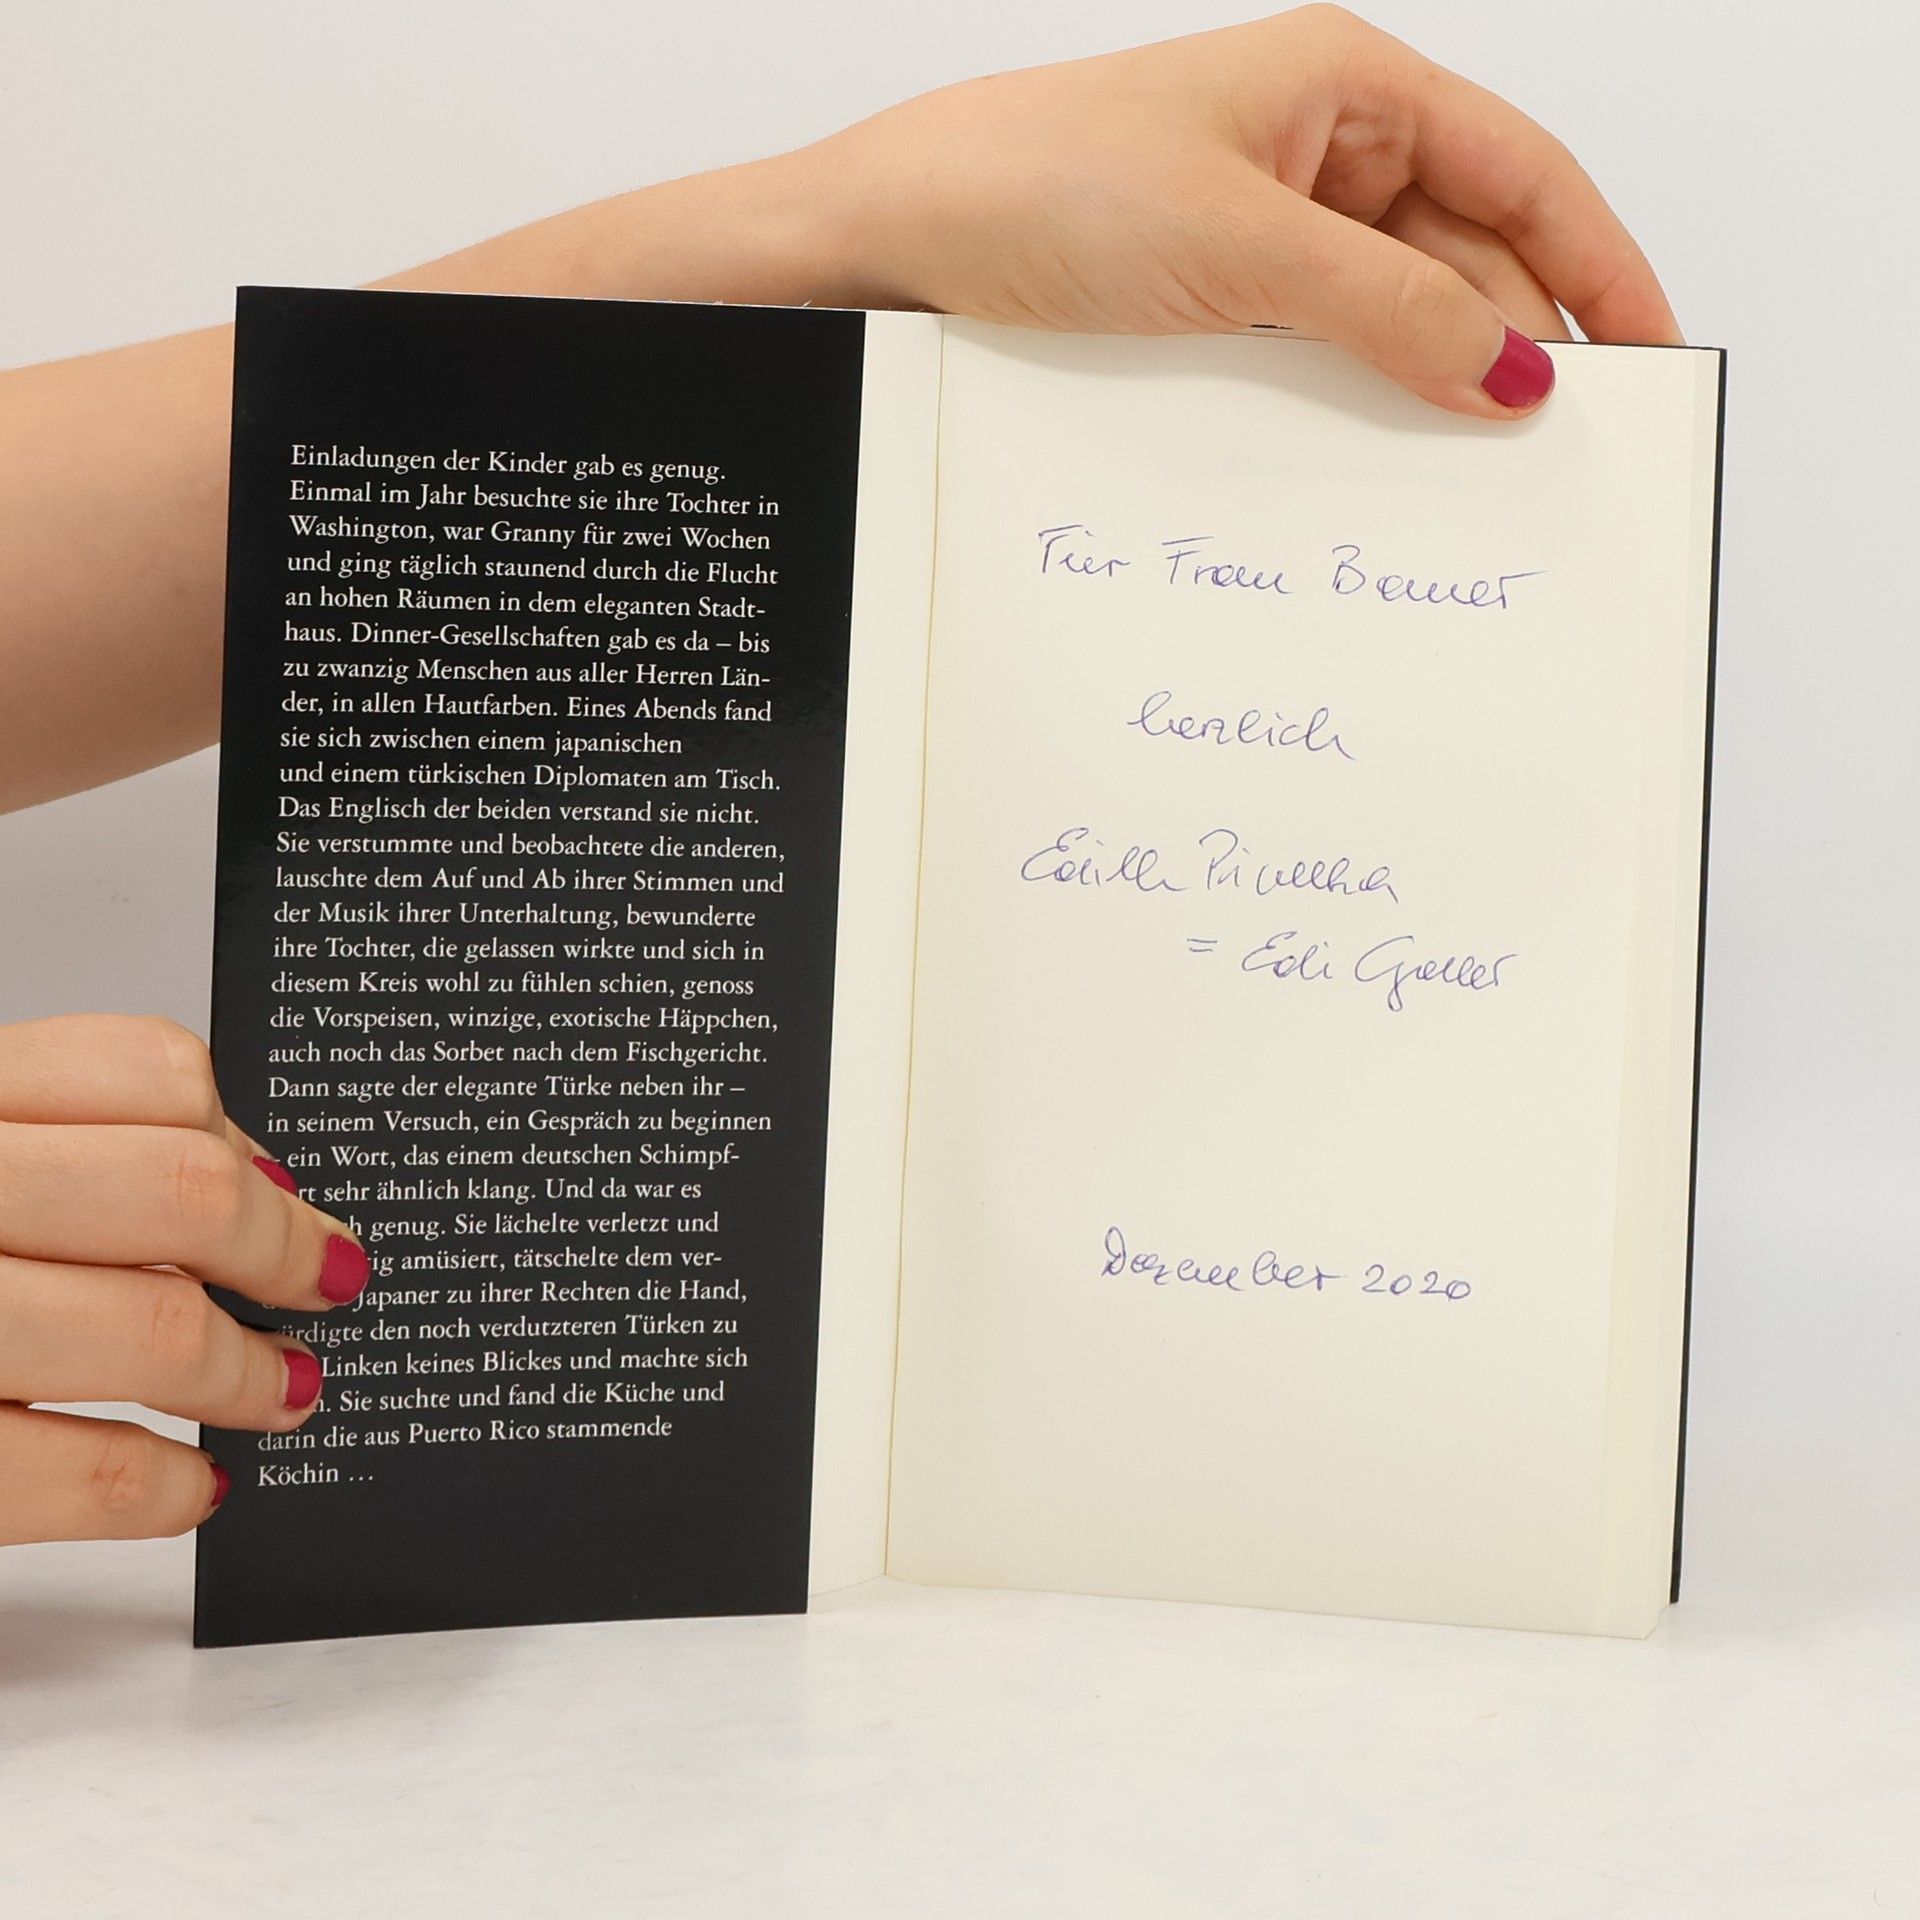 Einladungen der Kinder gab es genug.
Einmal im Jahr besuchte sie ihre Tochter in
Washington, war Granny für zwei Wochen
und ging täglich staunend durch die Flucht
an hohen Räumen in dem eleganten Stadt-
haus. Dinner-Gesellschaften gab es da – bis
zu zwanzig Menschen aus aller Herren Län-
der, in allen Hautfarben. Eines Abends fand
sie sich zwischen einem japanischen
und einem türkischen Diplomaten am Tisch.
Das Englisch der beiden verstand sie nicht.
Sie verstummte und beobachtete die anderen,
lauschte dem Auf und Ab ihrer Stimmen und
der Musik ihrer Unterhaltung, bewunderte
ihre Tochter, die gelassen wirkte und sich in
diesem Kreis wohl zu fühlen schien, genoss
die Vorspeisen, winzige, exotische Häppchen,
auch noch das Sorbet nach dem Fischgericht.
Dann sagte der elegante Türke neben ihr –
in seinem Versuch, ein Gespräch zu beginnen
– ein Wort, das einem deutschen Schimpf-
sehr ähnlich klang. Und da war es
genug. Sie lächelte verletzt und
amüsiert, tätschelte dem ver-
Japaner zu ihrer Rechten die Hand,
den noch verdutzteren Türken zu
Linken keines Blickes und machte sich
Sie suchte und fand die Küche und
darin die aus Puerto Rico stammende
Köchin ...
Für Frau
herzlich
Edith
= Edi
Dezember 2020